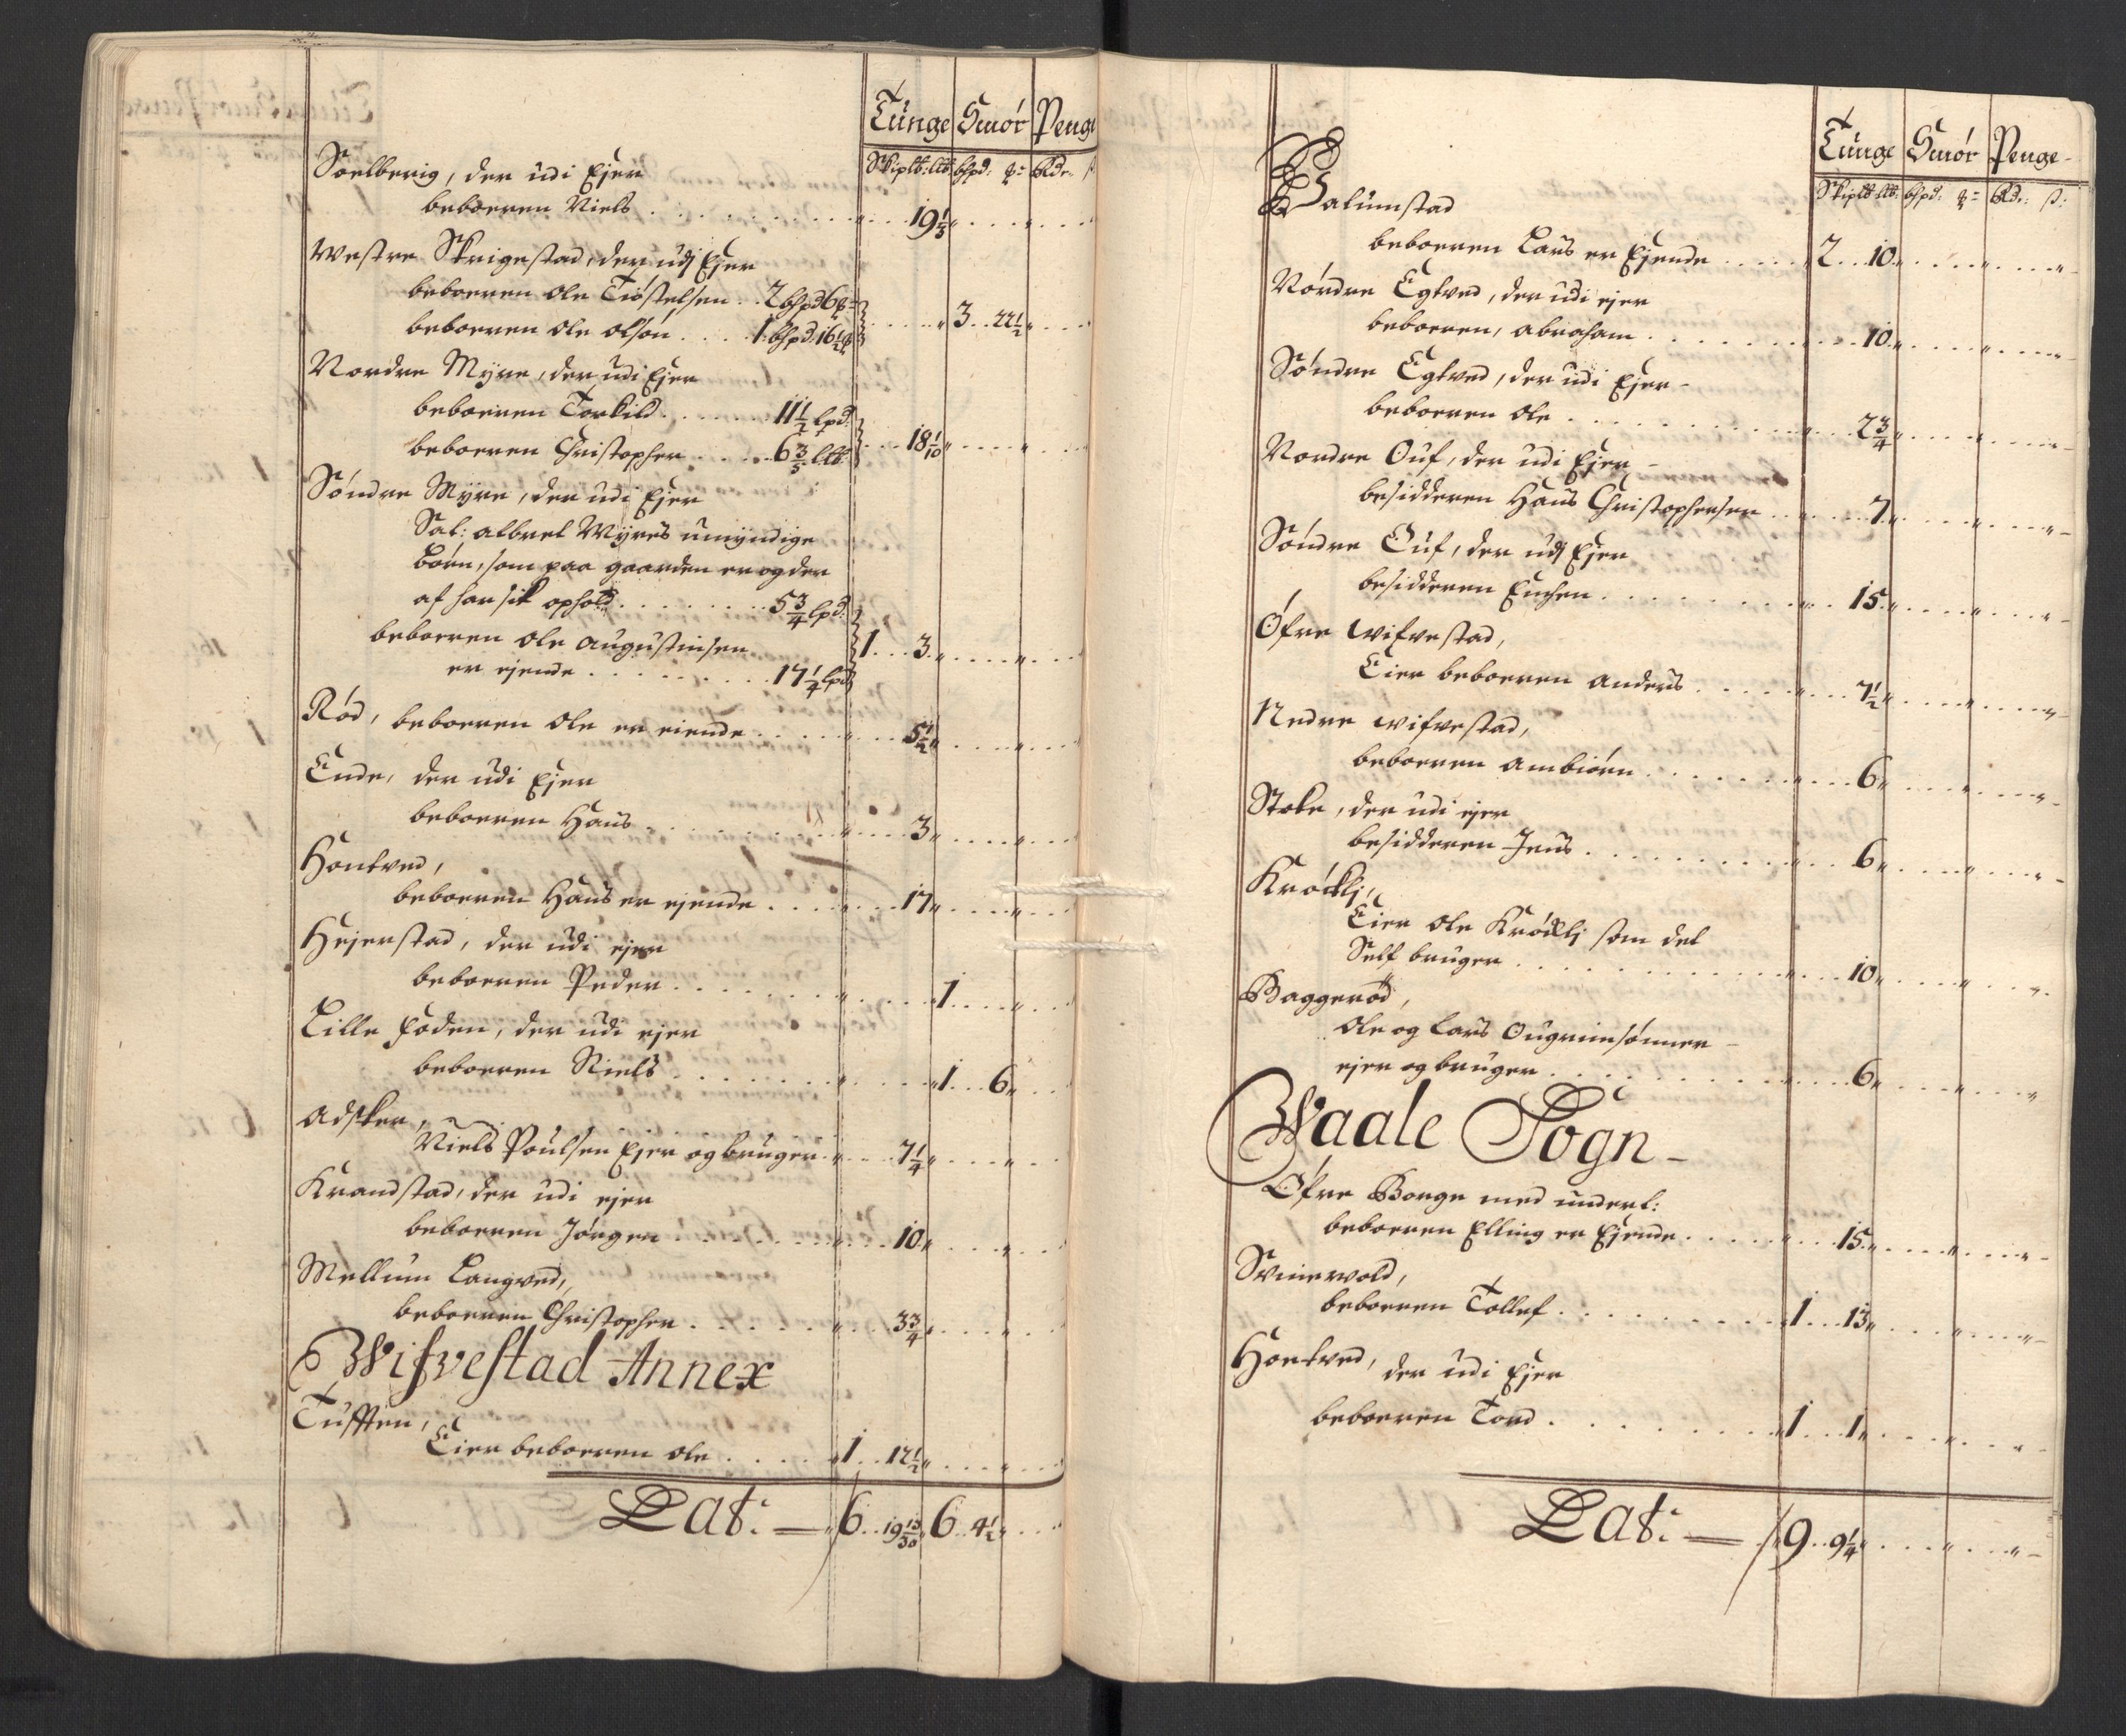 Tunge Smór Penge
Skiplb: Ltb bhpd: Rdr
Soelberig, der udi Ejer
beboeren Niels . . . 19 1/3
Westre Skrigestad, der udj Ejer
beboeren Ole Tiostelsen . . 2 bhpd 6
beboeren Ole Olsón . . . 1 bhpd 16 1/2 . . . 3 . . 22 1/2
Nordre Myre, der udi Ejer
beboeren Torkild . . . 11 1/2 lpd
beboeren Christopher . . . 6 3/5 Ltb . . . 18 1/10
Sóndre Myre, der udi Ejer
Sal: albret Myres umyndige
Bórn, som paa gaarden er og der
af har sit ophold . . . 5 3/4 lpd
beboeren Ole Augustinsen
er ejende . . . 17 1/4 lpd . . . 1 . . . 3
Ród, beboeren Ole er eiende . . . 5 1/2
Ende, der udi Ejer
beboeren Hans . . . 3
Hontved,
beboeren Hans er ejende . . . 17
Hejerstad, der udi ejer
beboeren Peder . . . 1
Lille Foden, der udi ejer
beboeren Niels . . . 1 . . 6
Adsker,
Niels Poulsen Ejer og bruger . . . 7 1/4
Krandstad, der udi ejer
beboeren Jórgen . . . 10
Mellum Langved,
beboeren Christopher . . . 3 3/4
Wifvestad Annex
Tufften,
Eier beboeren Ole . . . 1 . . 12 1/2
Lat: — 6 . . 19 13/30 6 . . 4 1/2
Tunge Smór Penge
Skiplb Ltb: bhpd: Rdr: ß:
Galumstad
beboeren Lars er Ejende . . . 2 . . . 10
Nórdre Egtved, der udi ejer
beboeren, Abraham . . . 10
Sóndre Egtved, der udi Ejer
beboeren Ole . . . 2 3/4
Nordre Ouf, der udi Ejer
besidderen Hans Christophersen . . . 7
Sóndre Ouf, der udj Ejer
besidderen . . . 15
Ófre Wifvestad,
Eier beboeren Anders . . . 7 1/2
Nedre Wifvestad,
beboeren Ambiórn . . . 6
Stoke, der udi ejer
besidderen Jens . . . 6
Krócklj,
Eier Ole Krócklj som det
Self bruger . . . 10
Baggeród,
Ole og Lars Ougrimsónner
ejer og bruger . . . 6
Waale Sogn
Ófre Borge med underl:
beboeren Elling er Ejende . . . 15
Svinevold,
beboeren Tollef . . . 1 . . . 13
Hontved, der udi Ejer
beboeren Tord . . . 1 . . . 1
Lat: — 9 . . 9 1/4